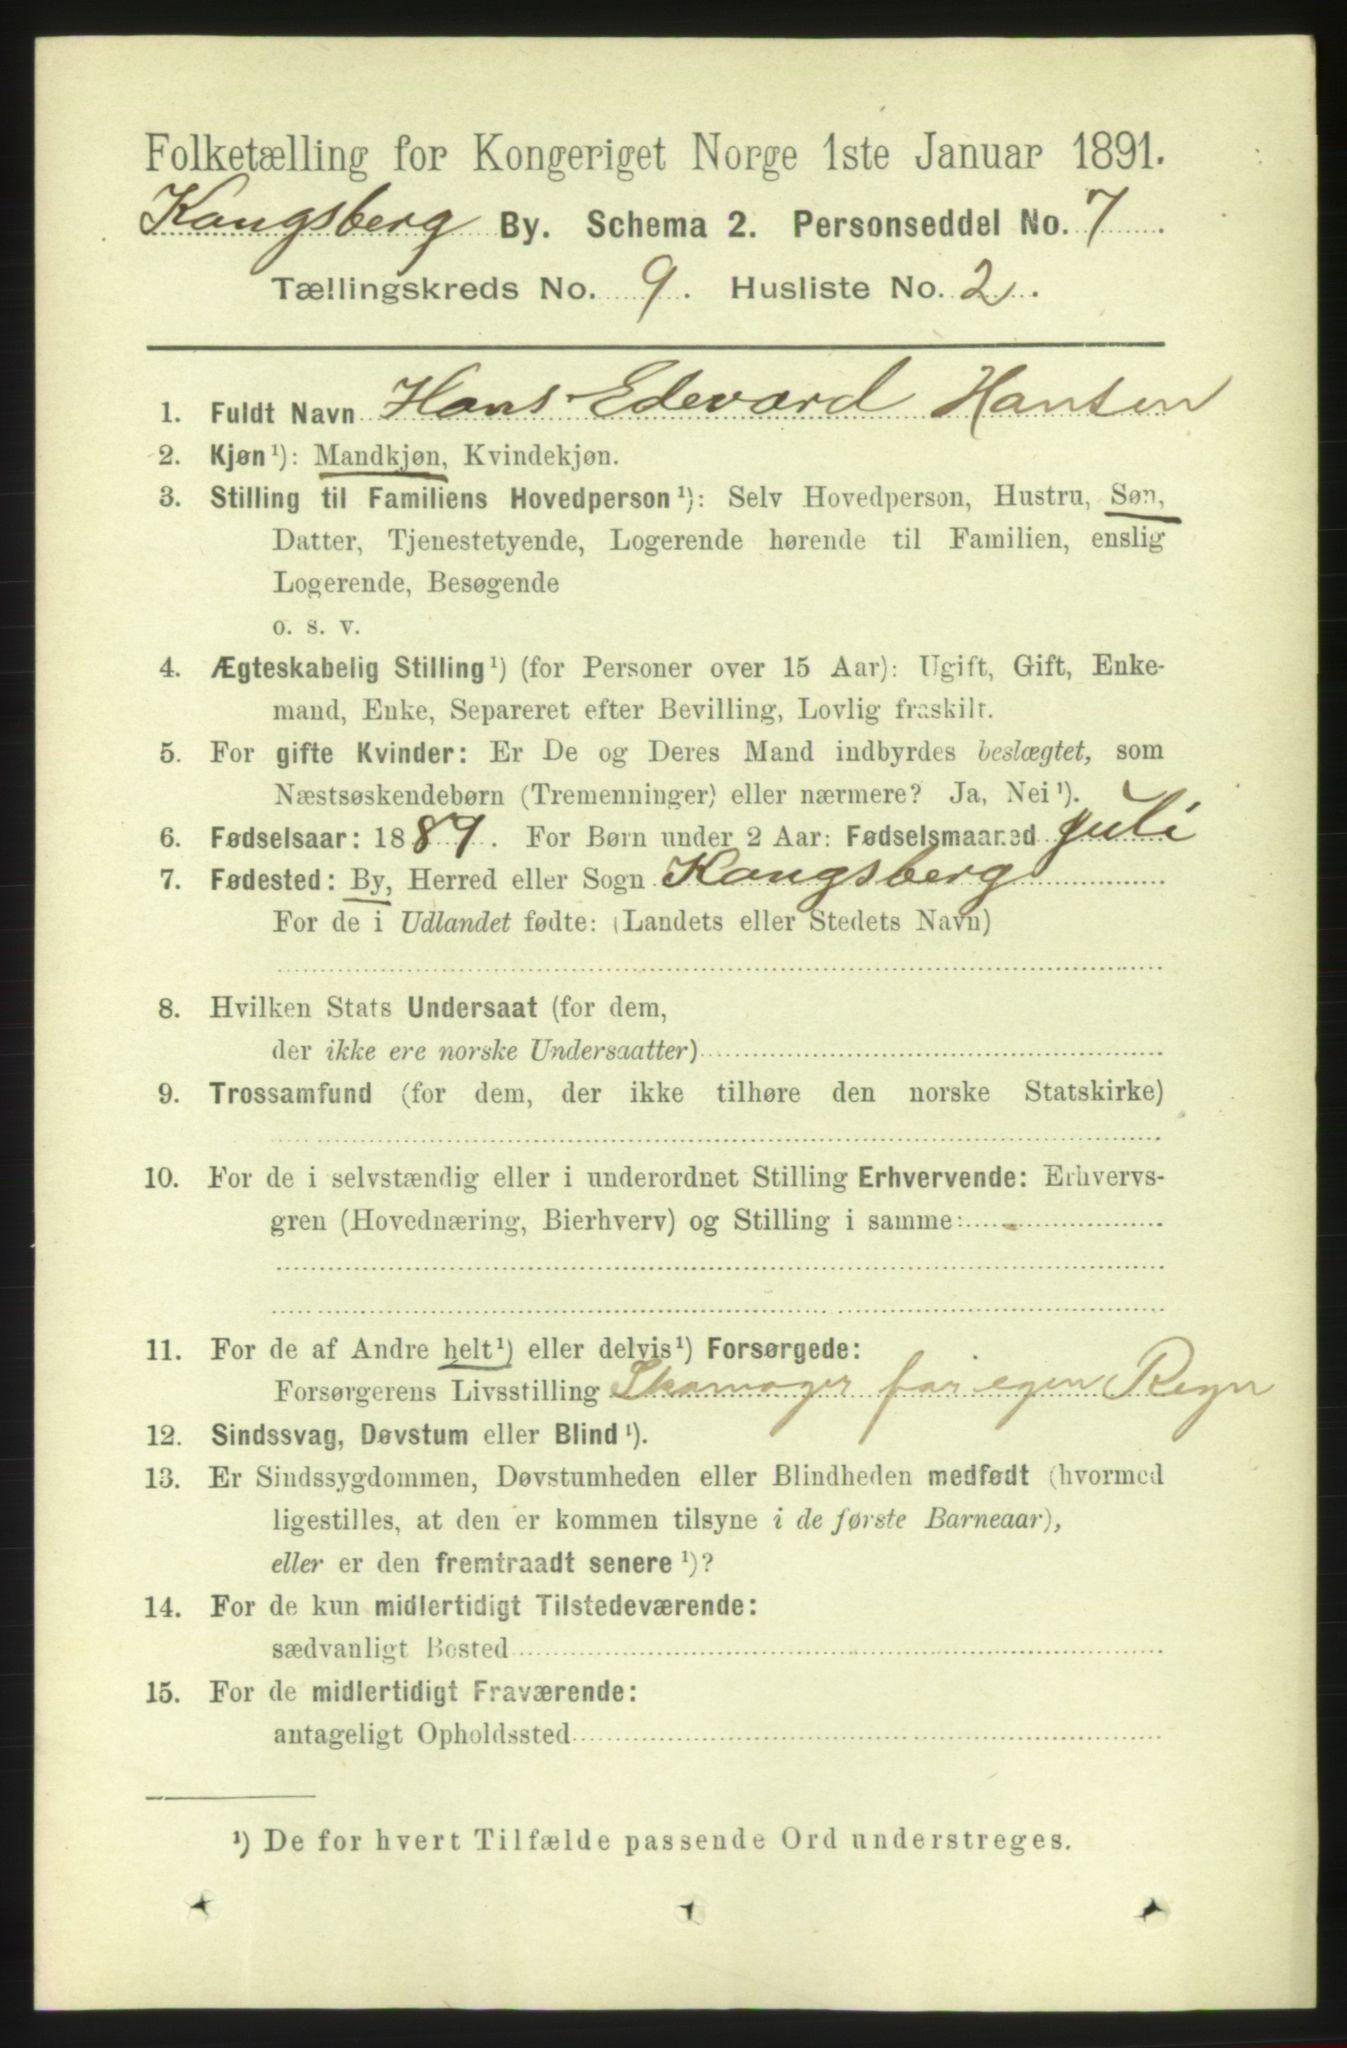 Folketælling for Kongeriget Norge 1ste Januar 1891.
Kongsberg By. Schema 2. Personseddel No. 7
Tællingskreds No. 9. Husliste No. 2.
1. Fuldt Navn Hans Edevard Hansen
2. Kjøn¹): Mandkjøn, Kvindekjøn.
3. Stilling til Familiens Hovedperson¹): Selv Hovedperson, Hustru, Søn,
Datter, Tjenestetyende, Logerende hørende til Familien, enslig
Logerende, Besøgende
o. s. v.
4. Ægteskabelig Stilling¹) (for Personer over 15 Aar): Ugift, Gift, Enke-
mand, Enke, Separeret efter Bevilling, Lovlig fraskilt.
5. For gifte Kvinder: Er De og Deres Mand indbyrdes beslægtet, som
Næstsøskendebørn (Tremenninger) eller nærmere? Ja, Nei¹).
6. Fødselsaar: 1887. For Børn under 2 Aar: Fødselsmaaned Juli
7. Fødested: By, Herred eller Sogn Kongsberg
For de i Udlandet fødte: (Landets eller Stedets Navn)
8. Hvilken Stats Undersaat (for dem,
der ikke ere norske Undersaatter)
9. Trossamfund (for dem, der ikke tilhøre den norske Statskirke)
10. For de i selvstændig eller i underordnet Stilling Erhvervende: Erhvervs-
gren (Hovednæring, Bierhverv) og Stilling i samme: -
11. For de af Andre helt¹) eller delvis¹) Forsørgede:
Forsørgerens Livsstilling Skomager for egen Regn
12. Sindssvag, Døvstum eller Blind¹).
13. Er Sindssygdommen, Døvstumheden eller Blindheden medfødt (hvormed
ligestilles, at den er kommen tilsyne i de første Barneaar),
eller er den fremtraadt senere¹)?
14. For de kun midlertidigt Tilstedeværende:
sædvanligt Bosted
15. For de midlertidigt Fraværende:
antageligt Opholdssted
¹) De for hvert Tilfælde passende Ord understreges.